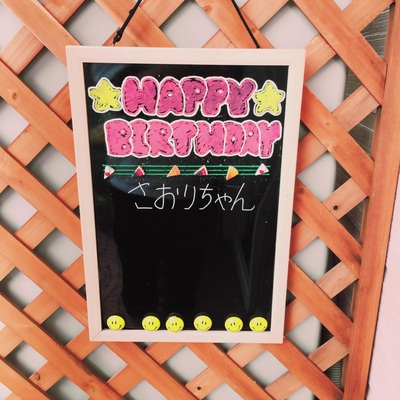 HAPPY
BIRTHDAY
さおりちゃん